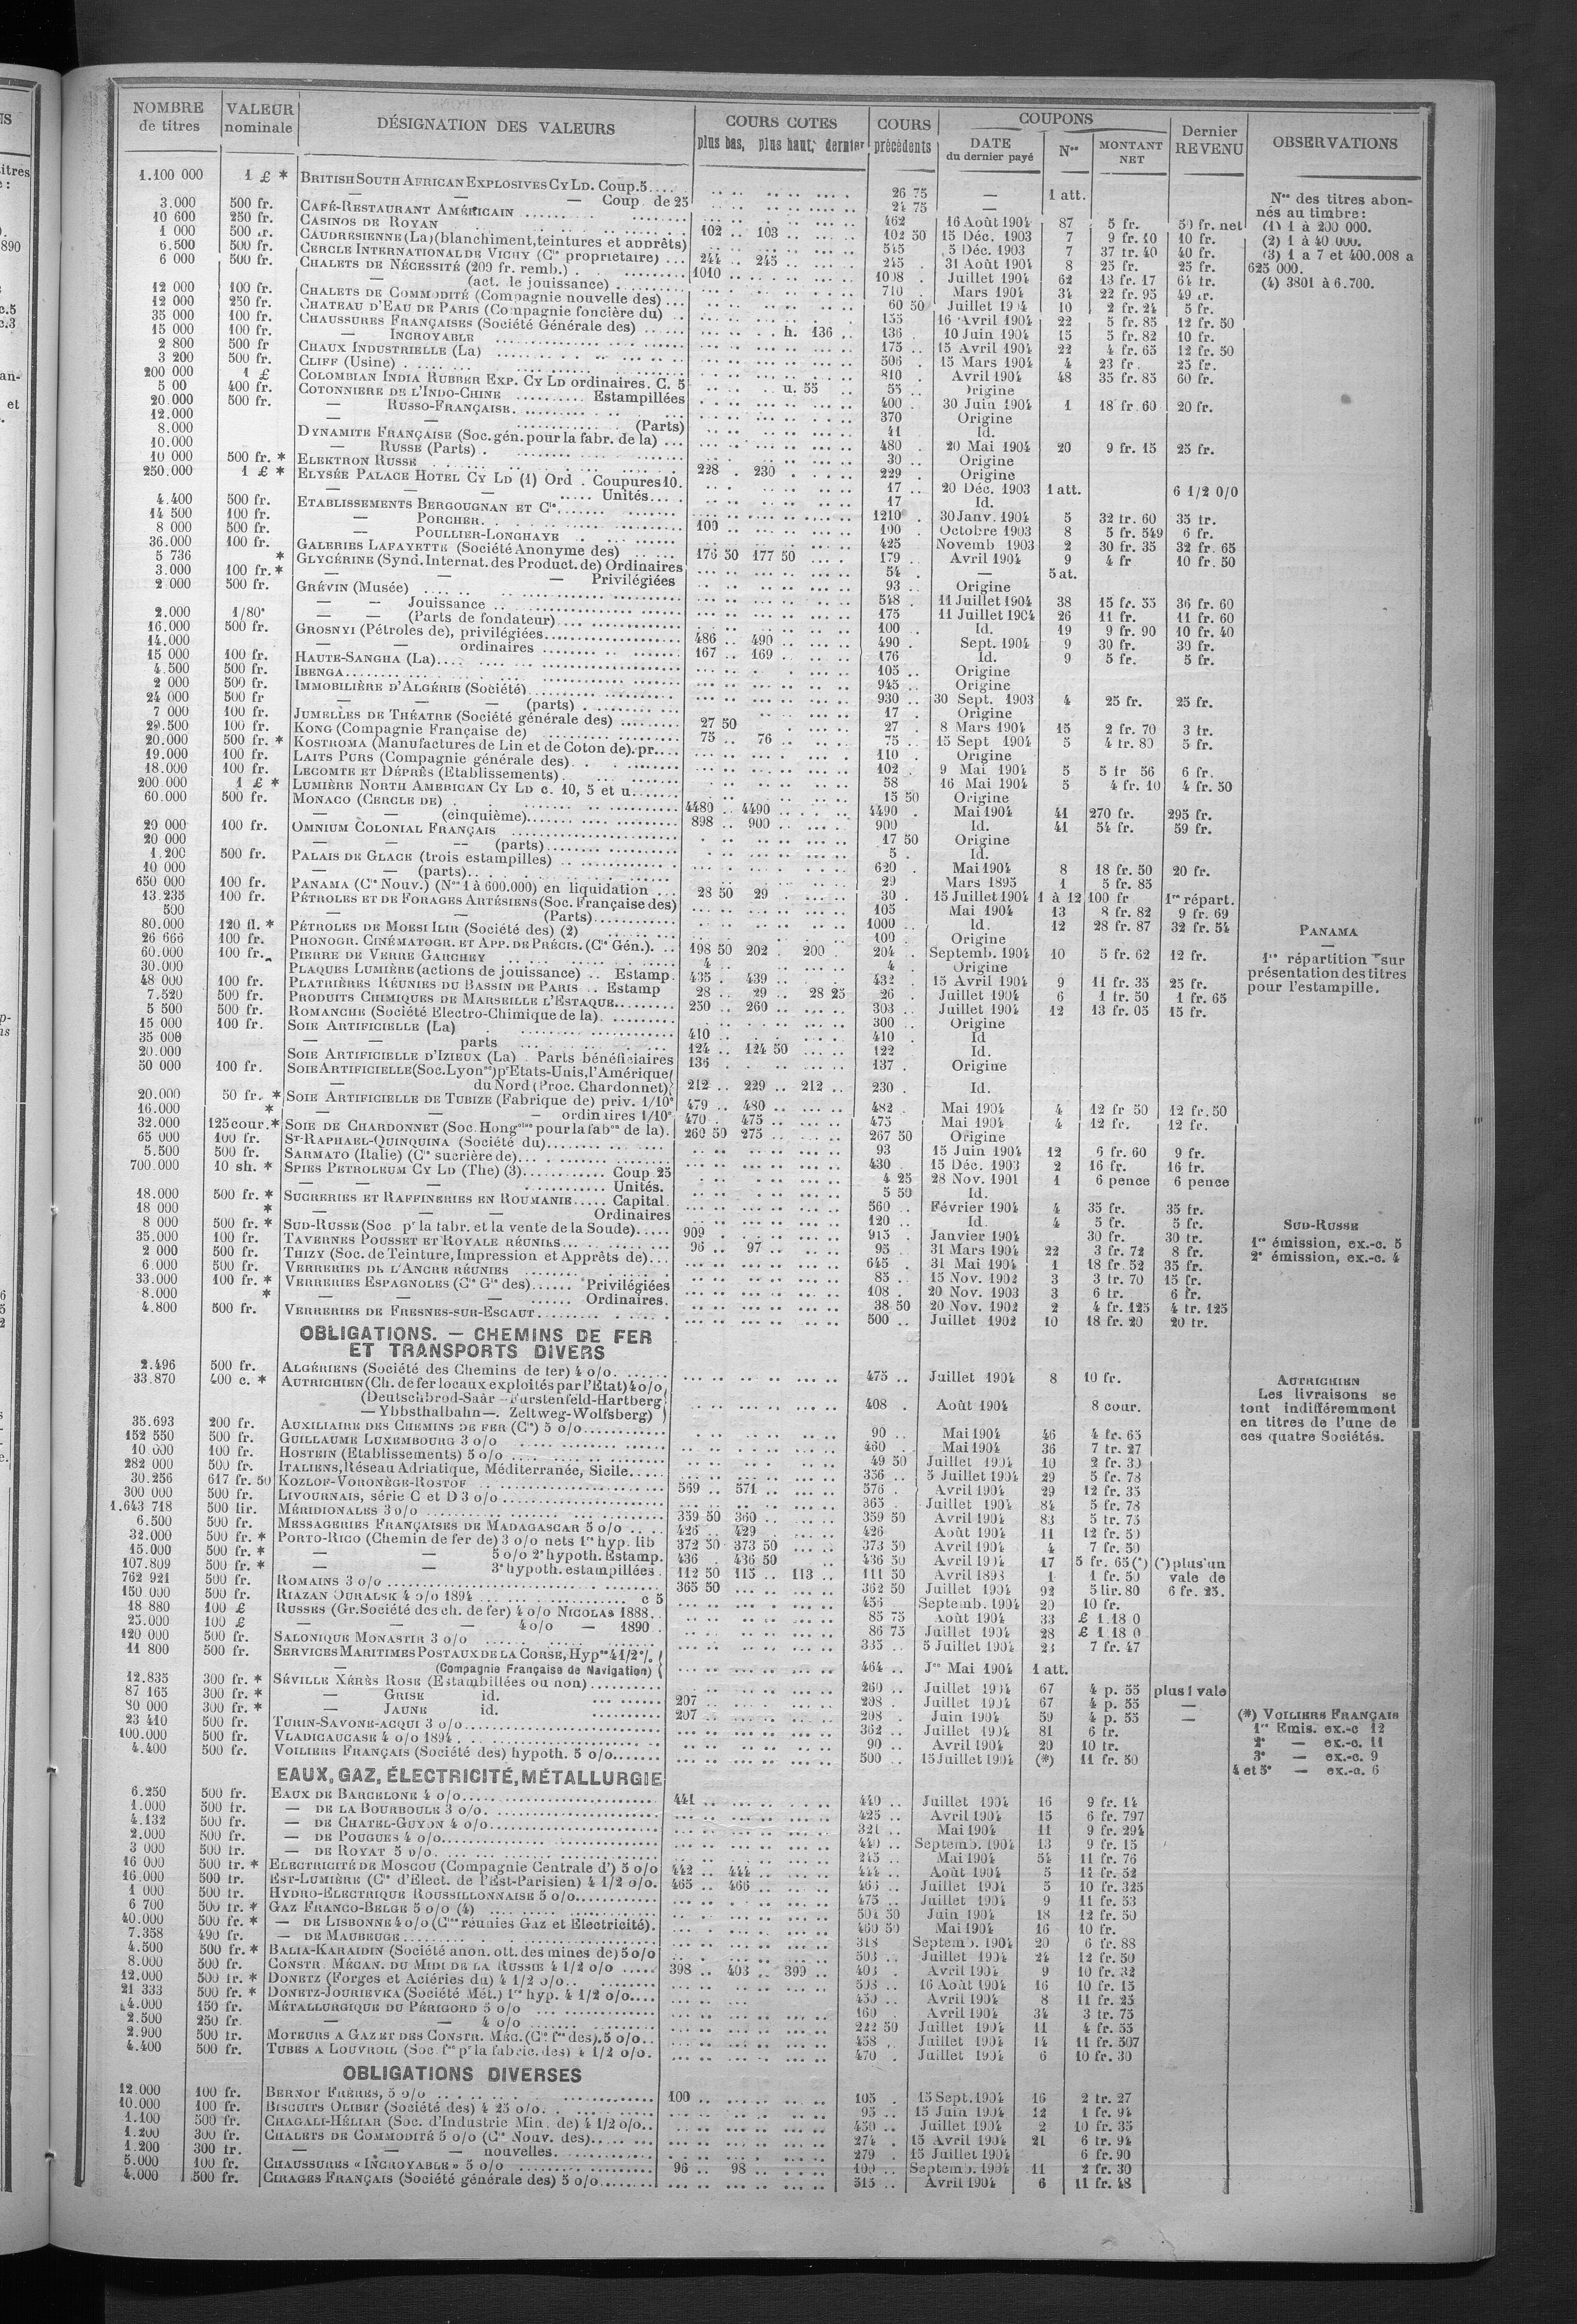 NOMBRE de titres | VALEUR nominale | DÉSIGNATION DES VALEURS | COURS COTES plus bas, plus haut, dernier | COURS précédents | COUPONS DATE du dernier payé | Nos | MONTANT NET | Dernier REVENU | OBSERVATIONS
1.100 000 | 1 £ * | BRITISH SOUTH AFRICAN EXPLOSIVES CY LD. Coup. 5.... | 26 75 | — | 1 att.
— — Coup. de 25 | 24 75 | —
3.000 | 500 fr. | CAFÉ-RESTAURANT AMÉRICAIN | 462 | 16 Août 1904 | 87 | 5 fr. | 50 fr. net
10 600 | 250 fr. | CASINOS DE ROYAN | 102 .. 103 | 102 50 | 15 Déc. 1903 | 7 | 9 fr. 40 | 10 fr.
1 000 | 500 fr. | CAUDRÉSIENNE (La) (blanchiment, teintures et apprêts) | 545 | 5 Déc. 1903 | 7 | 37 fr. 40 | 40 fr.
6.500 | 500 fr. | CERCLE INTERNATIONAL DE VICHY (Cie proprietaire) ... | 244 .. 245 | 245 | 31 Août 1904 | 8 | 25 fr. | 25 fr.
6 000 | 500 fr. | CHALETS DE NÉCESSITÉ (200 fr. remb.) . | 1010 | 1008 | Juillet 1904 | 62 | 13 fr. 17 | 64 fr.
— (act. de jouissance) | 710 | Mars 1904 | 34 | 22 fr. 95 | 49 fr.
12 000 | 100 fr. | CHALETS DE COMMODITÉ (Compagnie nouvelle des) ... | 60 50 | Juillet 1904 | 10 | 2 fr. 24 | 5 fr.
12 000 | 250 fr. | CHATEAU D'EAU DE PARIS (Compagnie foncière du) .. | 155 | 16 Avril 1904 | 22 | 5 fr. 85 | 12 fr. 50
35 000 | 100 fr. | CHAUSSURES FRANÇAISES (Société Générale des) | h. 136 | 136 | 10 Juin 1904 | 15 | 5 fr. 82 | 10 fr.
15 000 | 100 fr. | — INCROYABLE | 175 | 15 Avril 1904 | 22 | 4 fr. 65 | 12 fr. 50
2 800 | 500 fr | CHAUX INDUSTRIELLE (La) | 506 | 15 Mars 1904 | 4 | 23 fr. | 25 fr.
3 200 | 500 fr. | CLIFF (Usine) | 810 | Avril 1904 | 48 | 35 fr. 85 | 60 fr.
200 000 | 1 £ | COLOMBIAN INDIA RUBBER EXP. CY LD ordinaires. C. 5 | u. 55 | 55 | Origine
5 00 | 400 fr. | COTONNIÈRE DE L'INDO-CHINE .......... Estampillées | 400 | 30 Juin 1904 | 1 | 18 fr. 60 | 20 fr.
20.000 | 500 fr. | — RUSSO-FRANÇAISE | 370 | Origine
12.000 | — (Parts) | 41 | Id.
8.000 | DYNAMITE FRANÇAISE (Soc. gén. pour la fabr. de la) ... | 480 | 20 Mai 1904 | 20 | 9 fr. 15 | 25 fr.
10.000 | — RUSSE (Parts) | 30 .. | Origine
10 000 | 500 fr. * | ELEKTRON RUSSE | 228 . 230 | 229 | Origine
250.000 | 1 £ * | ELYSÉE PALACE HOTEL CY LD (1) Ord . Coupures 10. | 17 .. | 20 Déc. 1903 | 1 att. | 6 1/2 0/0
— — — ..... Unités.... | 17 | Id.
4.400 | 500 fr. | ETABLISSEMENTS BERGOUGNAN ET Cie | 1210 | 30 Janv. 1904 | 5 | 32 fr. 60 | 35 fr.
14 500 | 100 fr. | — PORCHER | 100 | 100 | Octobre 1903 | 8 | 5 fr. 549 | 6 fr.
8 000 | 500 fr. | — POULLIER-LONGHAYE | 425 | Novemb 1903 | 2 | 30 fr. 35 | 32 fr. 65
36.000 | 100 fr. | GALERIES LAFAYETTE (Société Anonyme des) | 176 50 177 50 | 179 | Avril 1904 | 9 | 4 fr | 10 fr. 50
5 736 | * | GLYCÉRINE (Synd. Internat. des Product. de) Ordinaires | 54 | — | 5 at.
3.000 | 100 fr. * | — — — Privilégiées | 93 | Origine
2 000 | 500 fr. | GRÉVIN (Musée) | 548 | 11 Juillet 1904 | 38 | 15 fr. 55 | 36 fr. 60
— — Jouissance .. | 175 | 11 Juillet 1904 | 26 | 11 fr. | 11 fr. 60
2.000 | 1/80e | — — (Parts de fondateur) | 100 | Id. | 19 | 9 fr. 90 | 10 fr. 40
16.000 | 500 fr. | GROSNYI (Pétroles de), privilégiées | 486 .. 490 | 490 | Sept. 1904 | 9 | 30 fr. | 30 fr.
14.000 | — — ordinaires | 167 .. 169 | 176 | Id. | 9 | 5 fr. | 5 fr.
15 000 | 100 fr. | HAUTE-SANGHA (La) | 105 | Origine
4.500 | 500 fr. | IBENGA | 945 | Origine
2 000 | 500 fr. | IMMOBILIÈRE D'ALGÉRIE (Société) | 930 | 30 Sept. 1903 | 4 | 25 fr. | 25 fr.
24 000 | 500 fr | — — — (parts) | 17 | Origine
7 000 | 100 fr. | JUMELLES DE THÉATRE (Société générale des) | 27 50 | 27 | 8 Mars 1904 | 15 | 2 fr. 70 | 3 fr.
29.500 | 100 fr. | KONG (Compagnie Française de) | 75 .. 76 | 75 | 15 Sept 1904 | 5 | 4 fr. 80 | 5 fr.
20.000 | 500 fr. * | KOSTROMA (Manufactures de Lin et de Coton de). pr.... | 110 | Origine
19.000 | 100 fr. | LAITS PURS (Compagnie générale des) | 102 | 9 Mai 1904 | 5 | 5 fr 56 | 6 fr.
18.000 | 100 fr. | LECOMTE ET DÉPRÈS (Etablissements) | 58 | 16 Mai 1904 | 5 | 4 fr. 10 | 4 fr. 50
200.000 | 1 £ * | LUMIÈRE NORTH AMERICAN CY LD c. 10, 5 et u. | 15 50 | Origine
60.000 | 500 fr. | MONACO (CERCLE DE) | 4480 .. 4490 | 4490 | Mai 1904 | 41 | 270 fr. | 295 fr.
— — (cinquième) | 898 .. 900 | 900 | Id. | 41 | 54 fr. | 59 fr.
20 000 | 100 fr. | OMNIUM COLONIAL FRANÇAIS | 17 50 | Origine
20 000 | — — — (parts) | 5 | Id.
1.200 | 500 fr. | PALAIS DE GLACE (trois estampilles) | 620 | Mai 1904 | 8 | 18 fr. 50 | 20 fr.
10 000 | — — (parts) | 29 | Mars 1895 | 1 | 5 fr. 85
650 000 | 100 fr. | PANAMA (Cie Nouv.) (Nos 1 à 600.000) en liquidation | 28 50 29 | 30 | 15 Juillet 1904 | 1 à 12 | 100 fr | 1re répart.
13.235 | 100 fr. | PÉTROLES ET DE FORAGES ARTÉSIENS (Soc. Française des) | 105 | Mai 1904 | 13 | 8 fr. 82 | 9 fr. 69
500 | — — (Parts) | 1000 | Id. | 12 | 28 fr. 87 | 32 fr. 54
80.000 | 120 fl. * | PÉTROLES DE MOESI ILIR (Société des) (2) | 100 | Origine
26 666 | 100 fr. | PHONOGR. CINÉMATOGR. ET APP. DE PRÉCIS. (Cie Gén.). | 198 50 202 . 200 | 204 | Septemb. 1904 | 10 | 5 fr. 62 | 12 fr.
60.000 | 100 fr. | PIERRE DE VERRE GARCHEY | 4 | 4 | Origine
30.000 | PLAQUES LUMIÈRE (actions de jouissance) .. Estamp. | 435 . 439 | 432 | 15 Avril 1904 | 9 | 11 fr. 35 | 25 fr.
48 000 | 100 fr. | PLATRIÈRES RÉUNIES DU BASSIN DE PARIS .. Estamp | 28 .. 29 .. 28 25 | 26 | Juillet 1904 | 6 | 1 fr. 50 | 1 fr. 65
7.520 | 500 fr. | PRODUITS CHIMIQUES DE MARSEILLE L'ESTAQUE | 250 .. 260 | 303 | Juillet 1904 | 12 | 13 fr. 05 | 15 fr.
5 500 | 500 fr. | ROMANCHE (Société Electro-Chimique de la) | 300 | Origine
15 000 | 100 fr. | SOIE ARTIFICIELLE (La) | 410 | 410 | Id
35 000 | — — parts | 124 .. 124 50 | 122 | Id.
20.000 | SOIE ARTIFICIELLE D'IZIEUX (La) . Parts bénéficiaires | 136 | 137 | Origine
50 000 | 100 fr. | SOIE ARTIFICIELLE (Soc. Lyonse) pr Etats-Unis, l'Amérique
— du Nord (Proc. Chardonnet) | 212 .. 229 .. 212 | 230 | Id.
20.000 | 50 fr. * | SOIE ARTIFICIELLE DE TUBIZE (Fabrique de) priv. 1/10e | 479 .. 480 | 482 | Mai 1904 | 4 | 12 fr 50 | 12 fr. 50
16.000 | * | — — — ordinaires 1/10e | 470 . 475 | 475 | Mai 1904 | 4 | 12 fr. | 12 fr.
32.000 | 125 cour. * | SOIE DE CHARDONNET (Soc. Hongoise pour la fabon de la). | 260 50 275 | 267 50 | Origine
65 000 | 100 fr. | ST-RAPHAEL-QUINQUINA (Société du) | 93 | 15 Juin 1904 | 12 | 6 fr. 60 | 9 fr.
5.500 | 500 fr. | SARMATO (Italie) (Cie sucrière de) | 430 | 15 Déc. 1903 | 2 | 16 fr. | 16 fr.
700.000 | 10 sh. * | SPIES PETROLEUM CY LD (The) (3) ........ Coup 25 | 4 25 | 28 Nov. 1901 | 1 | 6 pence | 6 pence
— — — ........ Unités. | 5 50 | Id.
18.000 | 500 fr. * | SUCRERIES ET RAFFINERIES EN ROUMANIE ..... Capital. | 560 | Février 1904 | 4 | 35 fr. | 35 fr.
18 000 | * | — — Ordinaires | 120 | Id. | 4 | 5 fr. | 5 fr.
8 000 | 500 fr. * | SUD-RUSSE (Soc pr la fabr. et la vente de la Soude) | 909 | 915 | Janvier 1904 | 30 fr. | 30 fr.
35.000 | 100 fr. | TAVERNES POUSSET ET ROYALE RÉUNIES | 96 .. 97 | 95 | 31 Mars 1904 | 22 | 3 fr. 72 | 8 fr.
2 000 | 500 fr. | THIZY (Soc. de Teinture, Impression et Apprêts de) | 645 | 31 Mai 1904 | 1 | 18 fr. 52 | 35 fr.
6.000 | 500 fr. | VERRERIES DE L'ANCRE RÉUNIES | 85 | 15 Nov. 1902 | 3 | 3 fr. 70 | 15 fr.
33.000 | 100 fr. * | VERRERIES ESPAGNOLES (Cie Gle des) ...... Privilégiées | 108 | 20 Nov. 1903 | 3 | 6 fr. | 6 fr.
8.000 | * | — — ...... Ordinaires. | 38 50 | 20 Nov. 1902 | 2 | 4 fr. 125 | 4 fr. 125
4.800 | 500 fr. | VERRERIES DE FRESNES-SUR-ESCAUT | 500 | Juillet 1902 | 10 | 18 fr. 20 | 20 fr.
OBLIGATIONS. — CHEMINS DE FER
ET TRANSPORTS DIVERS
2.496 | 500 fr. | ALGÉRIENS (Société des Chemins de fer) 4 o/o | 475 | Juillet 1904 | 8 | 10 fr.
33.870 | 400 c. * | AUTRICHIEN (Ch. de fer locaux exploités par l'Etat) 4 o/o
(Deutschbrod-Saar — Furstenfeld-Hartberg
— Ybbsthalbahn —. Zeltweg-Wolfsberg) | 408 | Août 1904 | 8 cour.
35.693 | 200 fr. | AUXILIAIRE DES CHEMINS DE FER (Cie) 5 o/o | 90 | Mai 1904 | 46 | 4 fr. 65
152 550 | 500 fr. | GUILLAUME LUXEMBOURG 3 o/o | 460 | Mai 1904 | 36 | 7 fr. 27
10 000 | 100 fr. | HOSTEIN (Etablissements) 5 o/o | 49 50 | Juillet 1904 | 10 | 2 fr. 30
282 000 | 500 fr. | ITALIENS, Réseau Adriatique, Méditerranée, Sicile | 356 | 5 Juillet 1904 | 29 | 5 fr. 78
30.256 | 617 fr. 50 | KOZLOF-VORONÈGE-ROSTOF | 569 .. 571 | 576 | Avril 1904 | 29 | 12 fr. 35
300 000 | 500 fr. | LIVOURNAIS, série C et D 3 o/o | 365 | Juillet 1904 | 84 | 5 fr. 78
1.643 718 | 500 lir. | MÉRIDIONALES 3 o/o | 359 50 360 | 359 50 | Avril 1904 | 83 | 5 fr. 75
6.500 | 500 fr. | MESSAGERIES FRANÇAISES DE MADAGASCAR 5 o/o | 426 .. 429 | 426 | Août 1904 | 11 | 12 fr. 50
32.000 | 500 fr. * | PORTO-RICO (Chemin de fer de) 3 o/o nets 1re hyp. lib | 372 50 373 50 | 373 50 | Avril 1904 | 4 | 7 fr. 50
15.000 | 500 fr. * | — — 5 o/o 2e hypoth. Estamp. | 436 . 436 50 | 436 50 | Avril 1904 | 17 | 5 fr. 65 (*) | (*) plus un
107.809 | 500 fr. * | — — 3e hypoth. estampillées | 112 50 115 .. 113 | 111 50 | Avril 1898 | 1 | 1 fr. 50 | vale de
762 921 | 500 fr. | ROMAINS 3 o/o | 365 50 | 362 50 | Juillet 1904 | 92 | 5 lir. 80 | 6 fr. 25.
150 000 | 500 fr. | RIAZAN OURALSK 4 o/o 1894 ........ c 5 | 456 | Septemb. 1904 | 20 | 10 fr.
18 880 | 100 £ | RUSSES (Gr. Société des ch. de fer) 4 o/o NICOLAS 1888. | 85 75 | Août 1904 | 33 | £ 1.18 0
25.000 | 100 £ | — — — 4 o/o — 1890 | 86 75 | Juillet 1904 | 28 | £ 1 18 0
120 000 | 500 fr. | SALONIQUE MONASTIR 3 o/o | 335 | 5 Juillet 1904 | 23 | 7 fr. 47
11 800 | 500 fr. | SERVICES MARITIMES POSTAUX DE LA CORSE, Hypre 4 1/2 %
— (Compagnie Française de Navigation) | 464 | Jce Mai 1904 | 1 att.
12.835 | 300 fr. * | SÉVILLE XÉRÈS ROSE (Estampillées ou non) | 260 | Juillet 1904 | 67 | 4 p. 55 | plus 1 vale
87 165 | 300 fr. * | — GRISE id. | 207 | 208 | Juillet 1904 | 67 | 4 p. 55 | —
80 000 | 300 fr. * | — JAUNE id. | 207 | 208 | Juin 1904 | 59 | 4 p. 55 | —
23 410 | 500 fr. | TURIN-SAVONE-ACQUI 3 o/o | 362 | Juillet 1904 | 81 | 6 fr.
100.000 | 500 fr. | VLADICAUCASE 4 o/o 1894 | 90 | Avril 1904 | 20 | 10 fr.
4.400 | 500 fr. | VOILIERS FRANÇAIS (Société des) hypoth. 5 o/o | 500 | 15 Juillet 1904 | (*) | 11 fr. 50
EAUX, GAZ, ÉLECTRICITÉ, MÉTALLURGIE
6.250 | 500 fr. | EAUX DE BARCELONE 4 o/o | 441 | 440 | Juillet 1904 | 16 | 9 fr. 14
1.000 | 500 fr. | — DE LA BOURBOULE 3 o/o | 425 | Avril 1904 | 15 | 6 fr. 797
4.132 | 500 fr. | — DE CHATEL-GUYON 4 o/o | 321 | Mai 1904 | 11 | 9 fr. 294
2.000 | 500 fr. | — DE POUGUES 4 o/o | 440 | Septemb. 1904 | 13 | 9 fr. 15
3 000 | 500 fr. | — DE ROYAT 5 o/o | 245 | Mai 1904 | 54 | 11 fr. 76
16 000 | 500 fr. * | ELECTRICITÉ DE MOSCOU (Compagnie Centrale d') 5 o/o | 442 .. 444 | 444 | Août 1904 | 5 | 11 fr. 52
16.000 | 500 fr. | EST-LUMIÈRE (Cie d'Elect. de l'Est-Parisien) 4 1/2 o/o. | 465 .. 466 | 465 | Juillet 1904 | 5 | 10 fr. 325
1 000 | 500 fr. | HYDRO-ELECTRIQUE ROUSSILLONNAISE 5 o/o | 475 | Juillet 1904 | 9 | 11 fr. 53
6 700 | 500 fr. * | GAZ FRANCO-BELGE 5 o/o (4) | 504 50 | Juin 1904 | 18 | 12 fr. 50
40.000 | 500 fr. * | — DE LISBONNE 4 o/o (Cies réunies Gaz et Electricité). | 460 50 | Mai 1904 | 16 | 10 fr.
7.358 | 490 fr. | — DE MAUBEUGE | 318 | Septemb. 1904 | 20 | 6 fr. 88
4.500 | 500 fr. * | BALIA-KARAIDIN (Société anon. ott. des mines de) 5 o/o | 503 | Juillet 1904 | 24 | 12 fr. 50
8.000 | 500 fr. | CONSTR. MÉCAN. DU MIDI DE LA RUSSIE 4 1/2 o/o | 398 .. 403 .. 399 | 403 | Avril 1904 | 9 | 10 fr. 32
12.000 | 500 fr. * | DONETZ (Forges et Aciéries du) 4 1/2 o/o | 503 | 16 Août 1904 | 16 | 10 fr. 15
21 333 | 500 fr. * | DONETZ-JOURIEVKA (Société Mét.) 1re hyp. 4 1/2 o/o | 450 | Avril 1904 | 8 | 11 fr. 25
4.000 | 150 fr. | MÉTALLURGIQUE DU PÉRIGORD 5 o/o | 160 | Avril 1904 | 34 | 3 fr. 75
2.500 | 250 fr. | — — 4 o/o | 222 50 | Juillet 1904 | 11 | 4 fr. 55
2.900 | 500 fr. | MOTEURS A GAZ ET DES CONSTR. MÉC. (Cie fse des). 5 o/o | 458 | Juillet 1904 | 14 | 11 fr. 507
4.400 | 500 fr. | TUBES A LOUVROIL (Soc. fse pr la fabric. des) 4 1/2 o/o. | 470 | Juillet 1904 | 6 | 10 fr. 30
OBLIGATIONS DIVERSES
12.000 | 100 fr. | BERNOT FRÈRES, 5 o/o | 100 | 105 | 15 Sept. 1904 | 16 | 2 fr. 27
10.000 | 100 fr. | BISCUITS OLIBET (Société des) 4 25 o/o | 95 | 15 Juin 1904 | 12 | 1 fr. 94
1.100 | 500 fr. | CHAGALI-HÉLIAR (Soc. d'Industrie Min. de) 4 1/2 o/o | 450 | Juillet 1904 | 2 | 10 fr. 35
1.200 | 300 fr. | CHALETS DE COMMODITÉ 5 o/o (Cie Nouv. des) | 274 | 15 Avril 1904 | 21 | 6 fr. 94
1.200 | 300 fr. | — — — nouvelles | 279 | 15 Juillet 1904 | 6 fr. 90
5.000 | 100 fr. | CHAUSSURES « INCROYABLE » 5 o/o | 96 .. 98 | 100 | Septemb. 1904 | 11 | 2 fr. 30
4.000 | 500 fr. | CIRAGES FRANÇAIS (Société générale des) 5 o/o | 515 | Avril 1904 | 6 | 11 fr. 48
Nos des titres abonnés au timbre:
(1) 1 à 200 000.
(2) 1 à 40 000.
(3) 1 à 7 et 400.008 a
625 000.
(4) 3801 à 6.700.
PANAMA
—
1re répartition sur
présentation des titres
pour l'estampille.
SUD-RUSSE
1re émission, ex.-c. 5
2e émission, ex.-c. 4
AUTRICHIEN
Les livraisons se
font indifféremment
en titres de l'une de
ces quatre Sociétés.
(*) VOILIERS FRANÇAIS
1re Emis. ex.-c 12
2e — ex.-c. 11
3e — ex.-c. 9
4 et 5e — ex.-c. 6